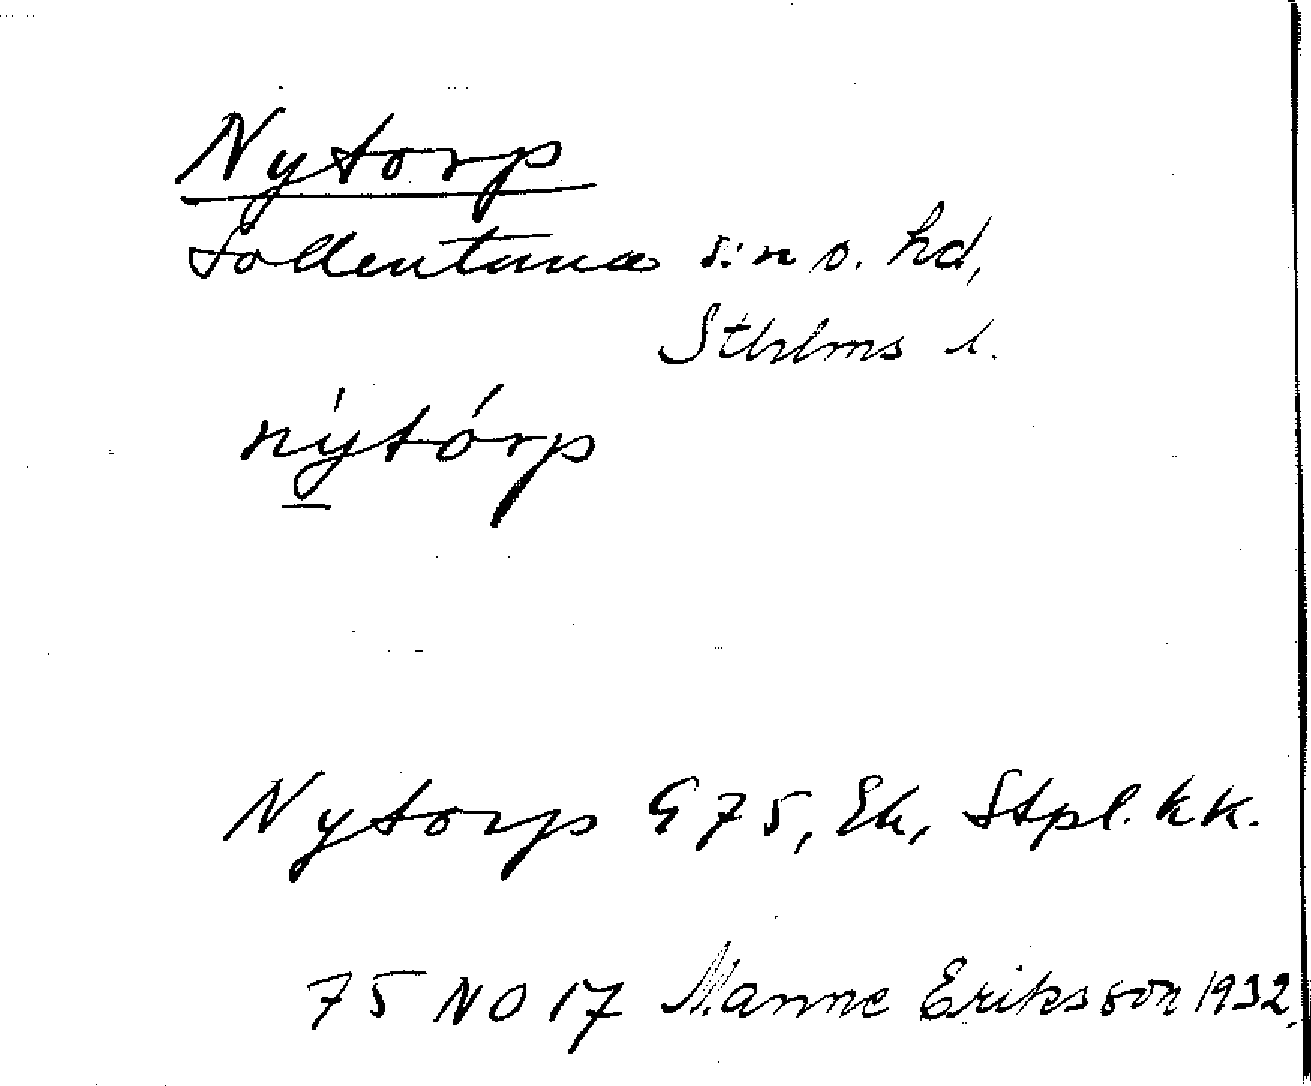 Nytorp
Sollentuna s:n o. hd,
Sthlms l.
nýtórp
Nytorp G 75, Ek, Stpl. kk.
75 NO 17 Manne Eriksson 1932.